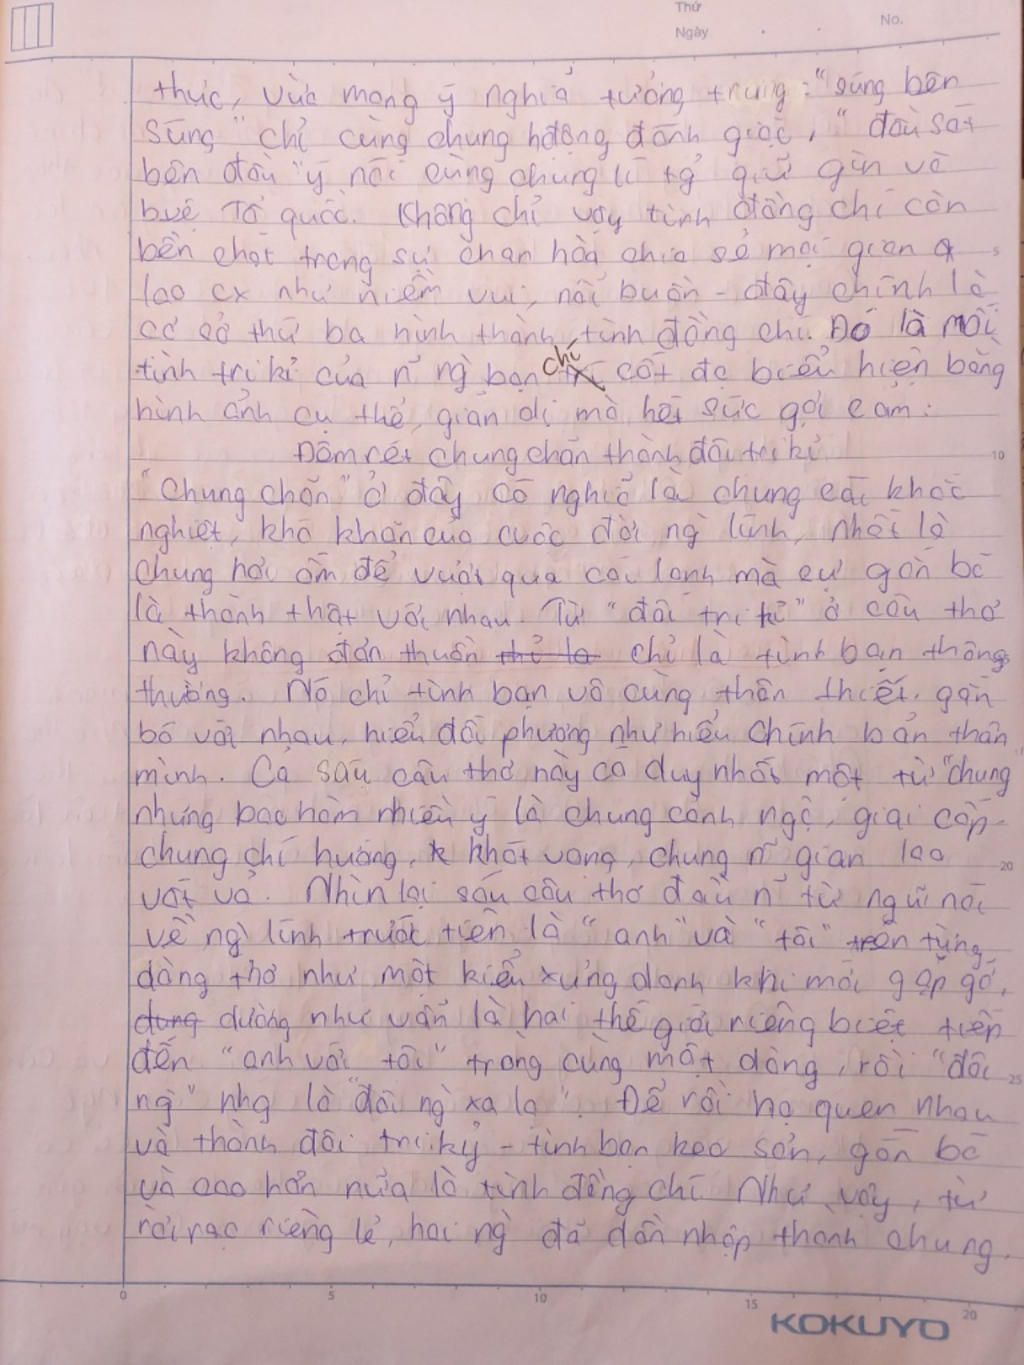 Thứ
Ngày
No.
thực, vừa mang ý nghĩa tưởng trưng : "súng bên
Súng" chỉ cùng chung hđộng đánh giặc, "đầu sát
bên đầu" ý nói cùng chung lí tg giữ gìn và
bvệ Tổ quốc. Không chỉ vậy tình đồng chí còn
bền chặt trong sự chan hòa chia sẻ mọi gian
lao cx như niềm vui, nỗi buồn - đây chính là
cơ sở thứ ba hình thành tình đồng chí. Đó là mối
tình tri kỉ của n~ ng` bạn chí cốt đc biểu hiện bằng
hình ảnh cụ thể, giản dị mà hết sức gợi cảm :
Đêm rét chung chăn thành đôi tri kỉ
"Chung chăn" ở đây có nghĩa là chung cái khắc
nghiệt, khó khăn của cuộc đời ng` lính, nhất là
chung hơi ấm để vượt qua cái lạnh mà sự gắn bó
là thành thật với nhau. Từ "đôi tri kỉ" ở câu thơ
này không đơn thuần thỉ la chỉ là tình bạn thông
thường. Nó chỉ tình bạn vô cùng thân thiết, gắn
bó với nhau, hiểu đối phương như hiểu chính bản thân
mình. Cả sáu câu thơ này có duy nhất một từ "chung
nhưng bao hàm nhiều ý là chung cảnh ngộ, giai cấp
chung chí hướng, k khát vọng, chung n~ gian lao
vất vả. Nhìn lại sáu câu thơ đầu n~ từ ngữ nói
về ng` lính trước tiên là "anh" và "tôi" trên từng
dòng thơ như một kiểu xưng danh khi mới gặp gỡ,
dung dường như vẫn là hai thế giới riêng biệt tiếp
đến "anh với tôi" trong cùng một dòng, rồi "đôi
ng`" nhg là "đôi ng` xa lạ". Để rồi họ quen nhau
và thành đôi tri kỷ - tình bạn keo sơn, gắn bó
và cao hơn nữa là tình đồng chí Như vậy, từ
rời rạc riêng lẻ, hai ng` đã dần nhập thành chung.
5
10
20
25
0
5
10
15
20
KOKUYO